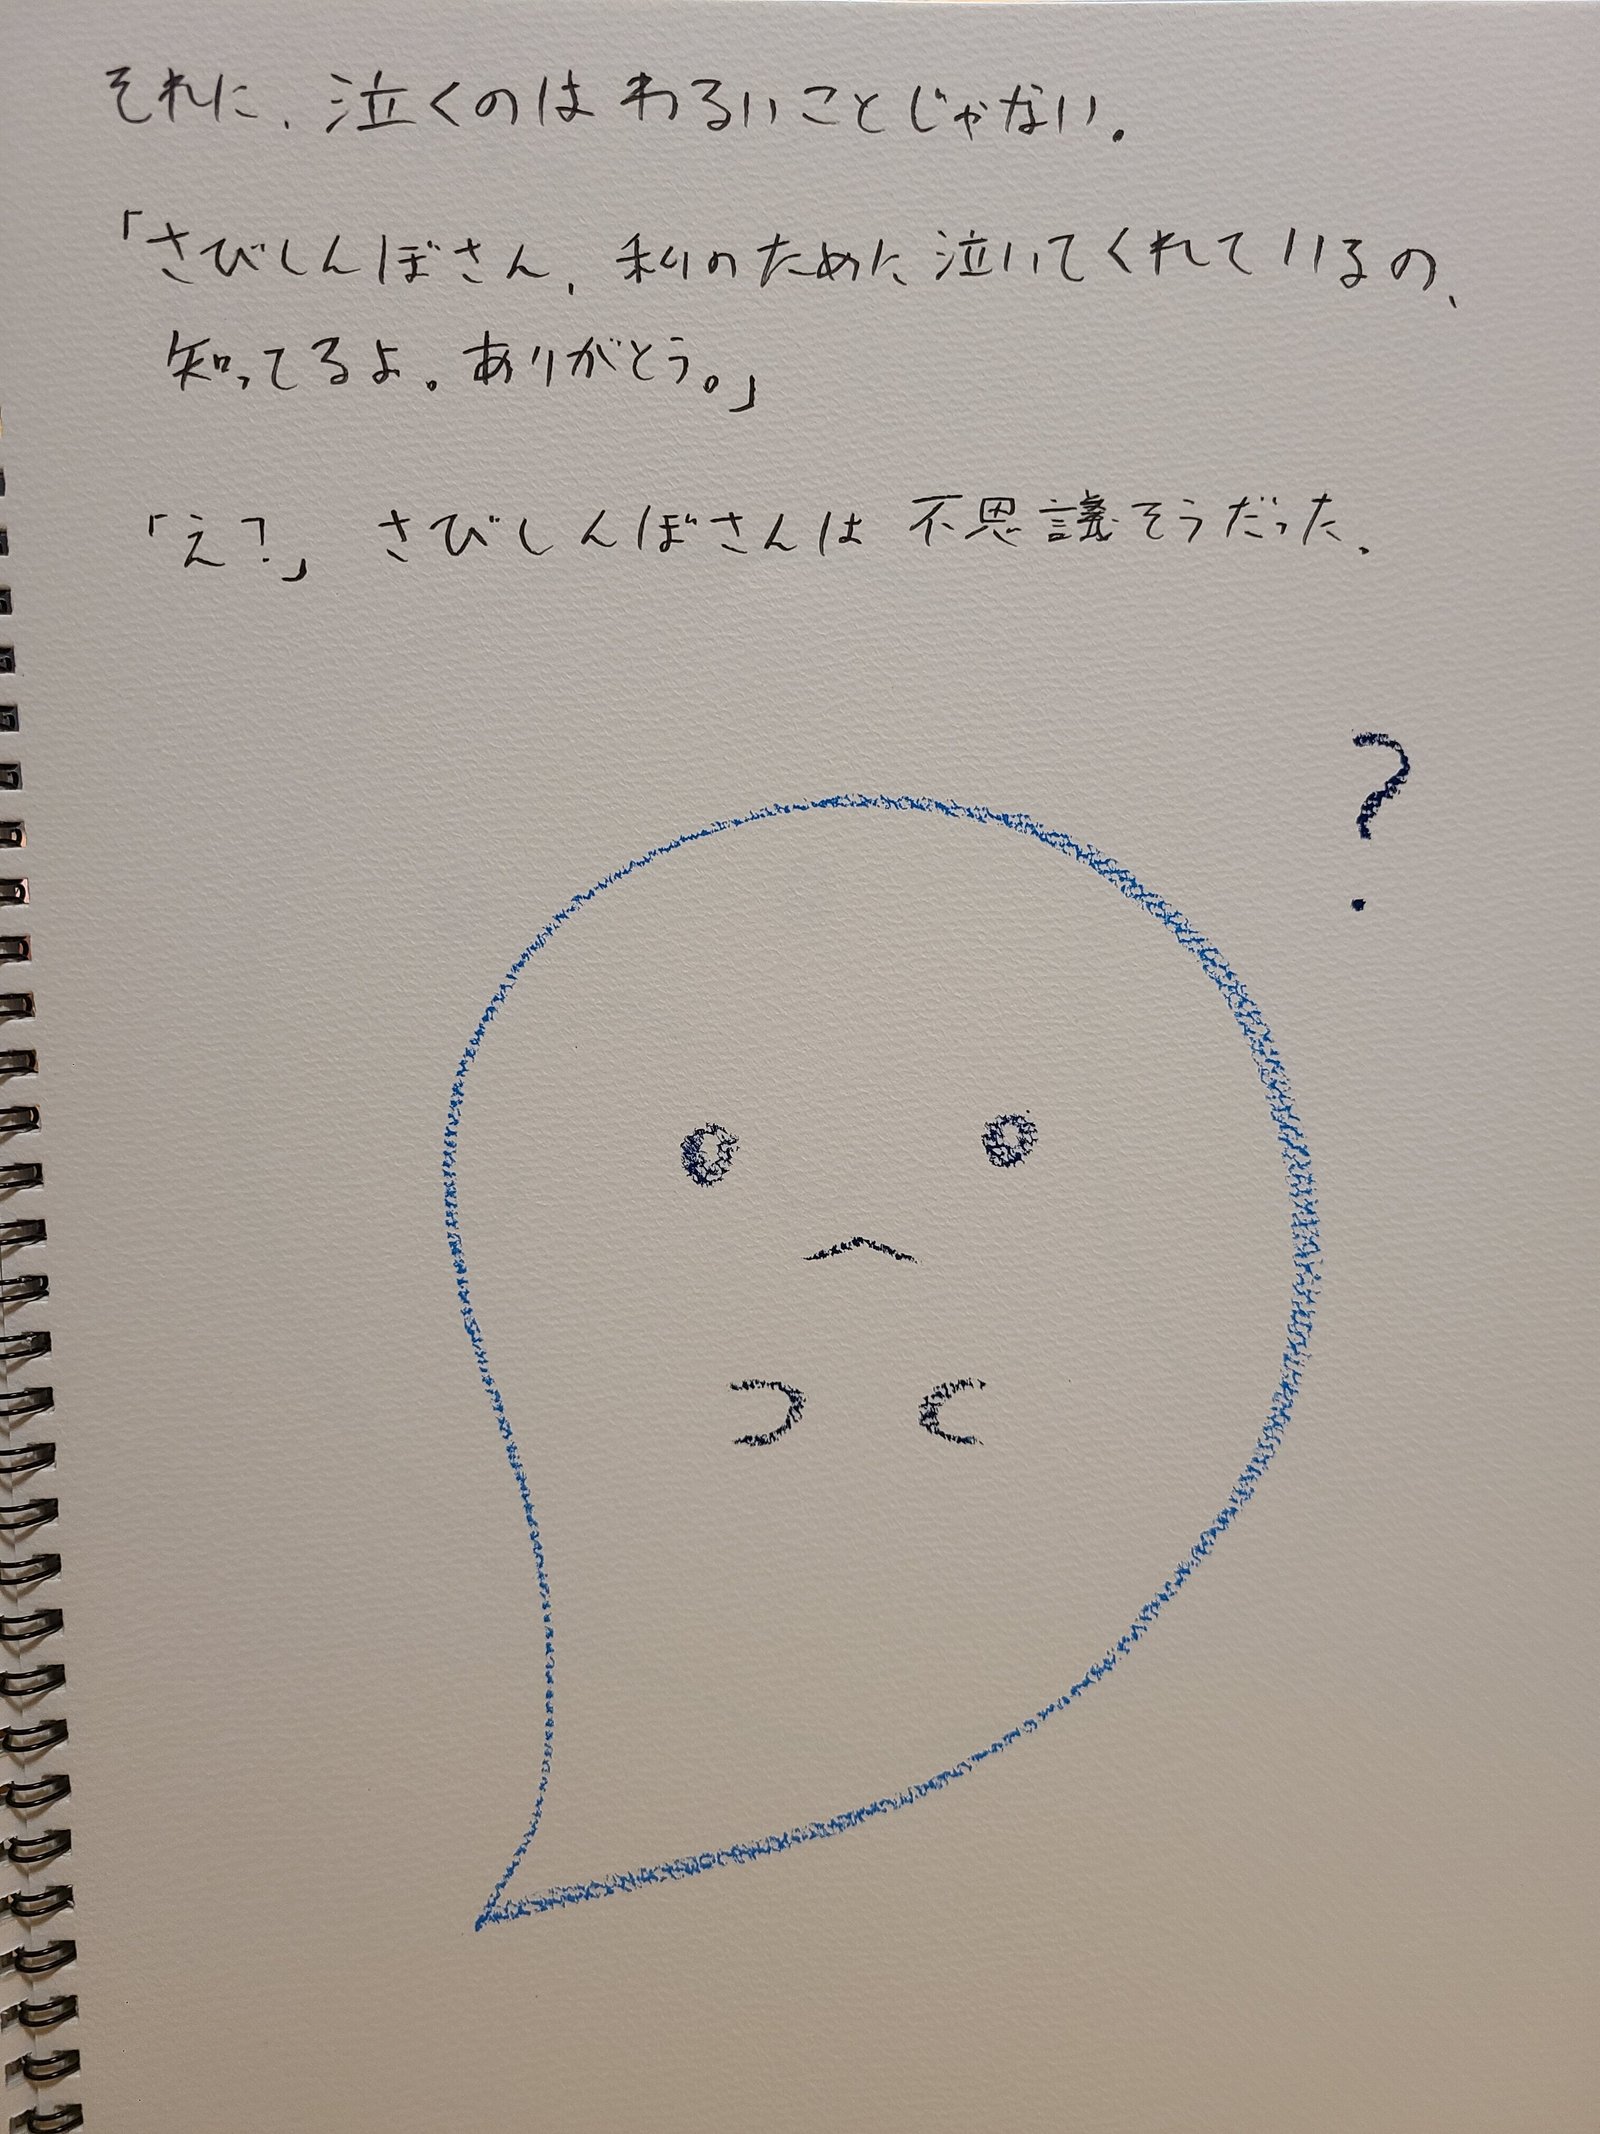 それに、泣くのはわるいことじゃない。
「さびしんぼさん、私のために泣いてくれているの、
知ってるよ。ありがとう。」
「え?」 さびしんぼさんは 不思議そうだった。
?